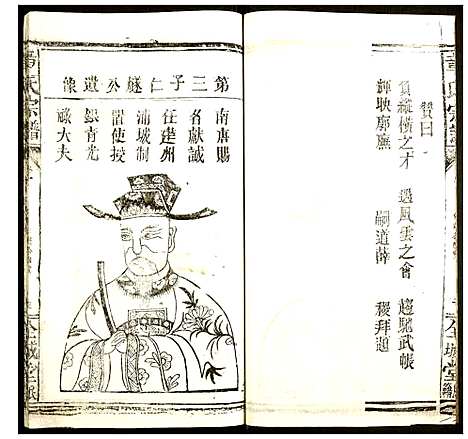 贊曰
負縱橫之才 遇風雲之會 趨馳武帳
輝映廓廡 嗣道薛 稷拜題
第三子仁燧公遺像
南唐賜
名獻誠
任建州
浦城制
置使授
銀青光
祿大夫
氏宗譜
全城堂